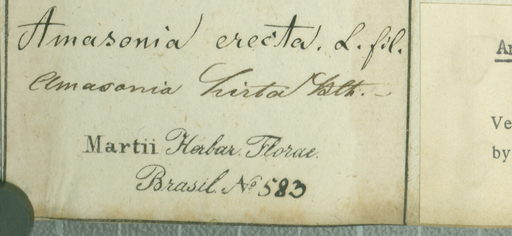 Amasonia erecta. L. fil.
Amasonia hirta Bth.
Martii Herbar. Florae
Brasil. No 583
Ve
by